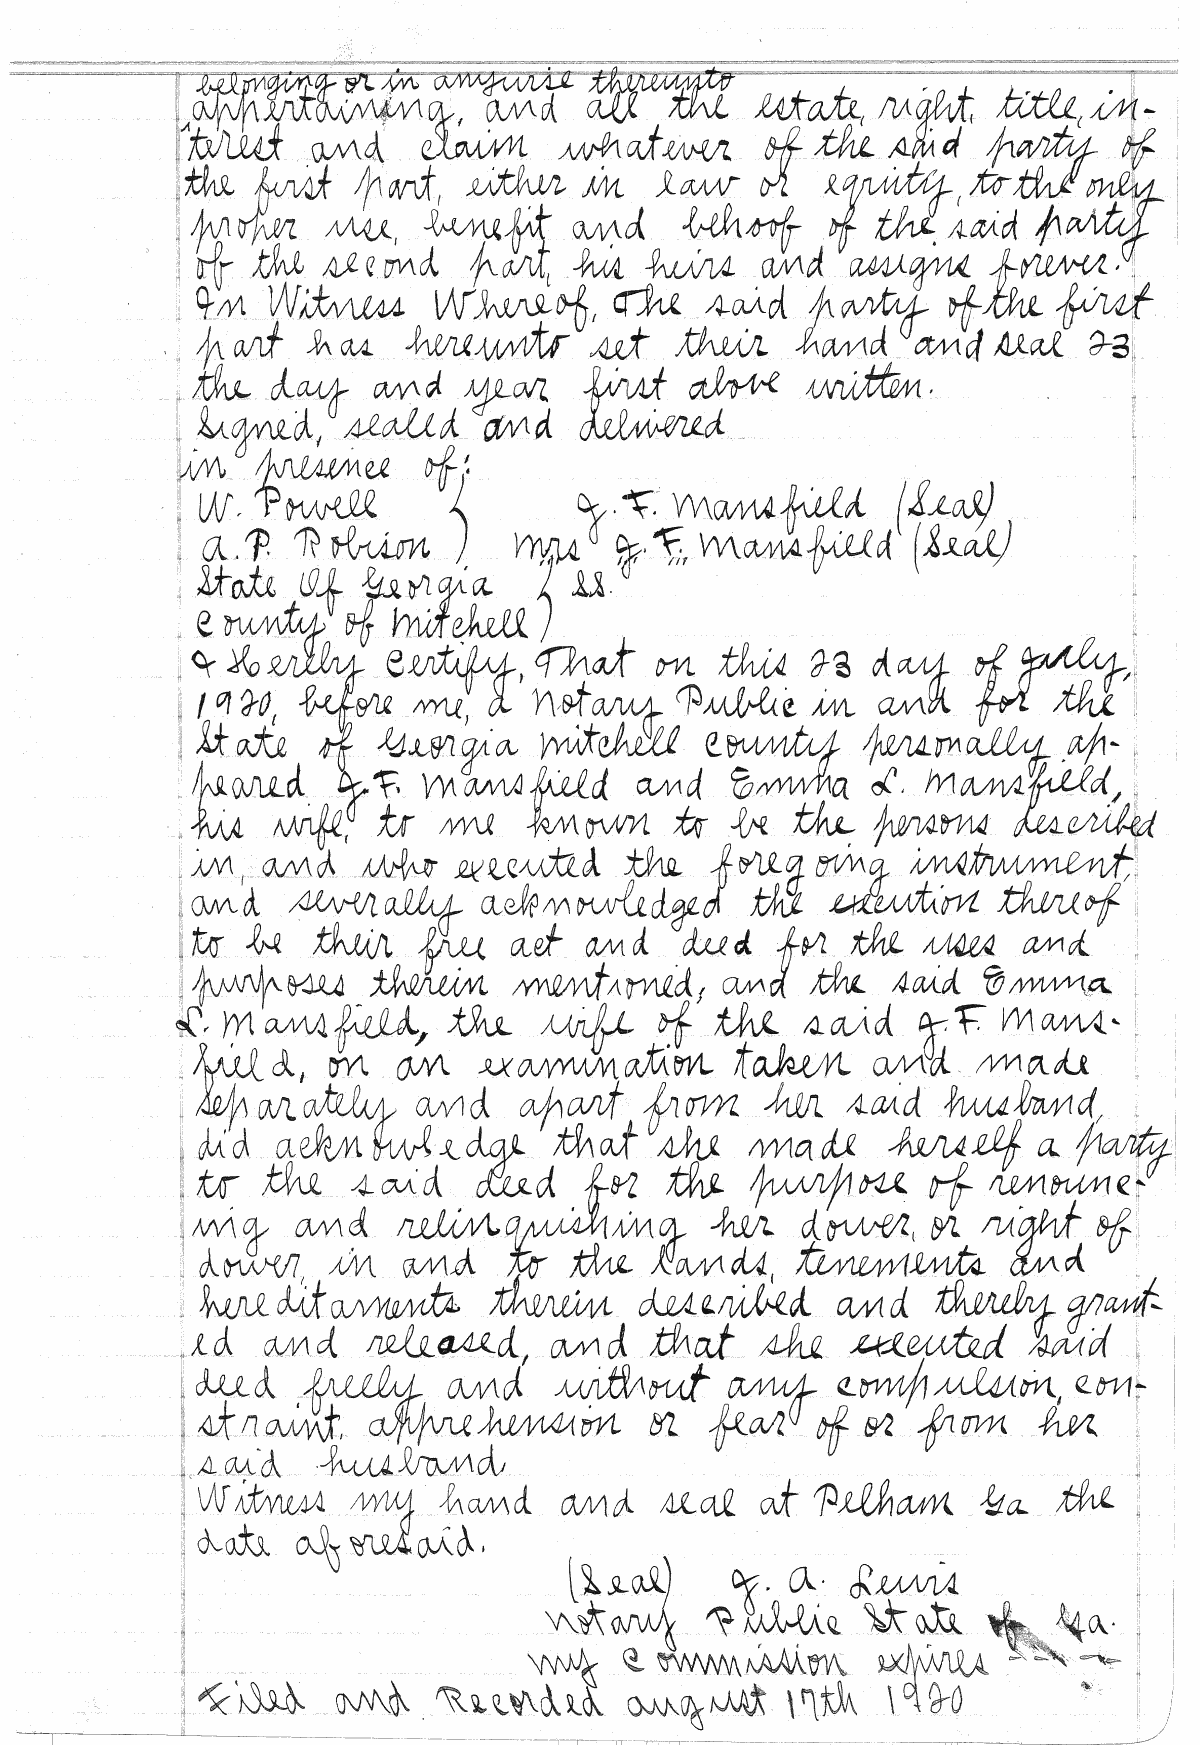 belonging or in anywise thereunto
appertaining, and all the estate, right, title, in-
terest and claim whatever of the said party of
the first part, either in law or equity, to the only
proper use, benefit and behoof of the said party
of the second part, his heirs and assigns forever.
In Witness Whereof, The said party of the first
part has hereunto set their hand and seal 23
the day and year first above written.
Signed, sealed and delivered
in presence of:
W. Powell } J. F. Mansfield (Seal)
A. P. Robison ) Mrs J. F. Mansfield (Seal)
State Of Georgia } SS.
County of Mitchell )
I Hereby Certify, That on this 23 day of July,
1920, before me, a Notary Public in and for the
State of Georgia Mitchell County personally ap-
peared J. F. Mansfield and Emma L. Mansfield,
his wife, to me known to be the persons described
in, and who executed the foregoing instrument,
and severally acknowledged the execution thereof
to be their free act and deed for the uses and
purposes therein mentioned; and the said Emma
L. Mansfield, the wife of the said J. F. Mans-
field, on an examination taken and made
separately and apart from her said husband,
did acknowledge that she made herself a party
to the said deed for the purpose of renounc-
ing and relinquishing her dower, or right of
dower, in and to the lands, tenements and
hereditaments therein described and thereby grant-
ed and released, and that she executed said
deed freely and without any compulsion, con-
straint, apprehension or fear of or from her
said husband.
Witness my hand and seal at Pelham Ga the
date aforesaid.
(Seal) J. A. Lewis
Notary Public State of Ga.
My Commission expires - - - -
Filed and Recorded August 17th 1920